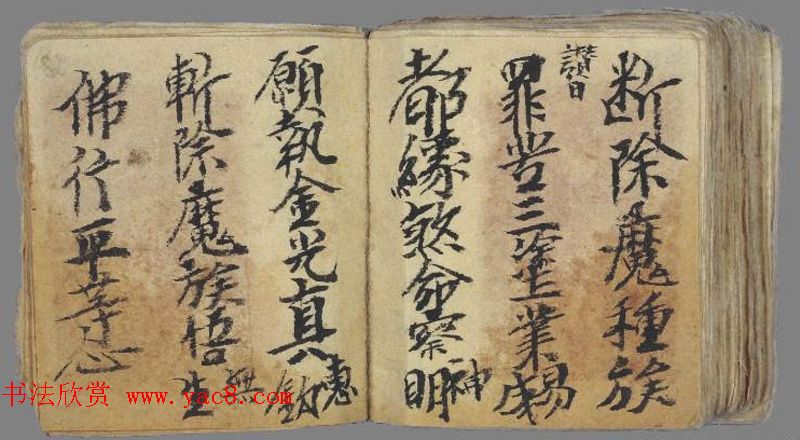 断除魔種族
讃曰
罪苦三塗業易成
都緣煞命察神明
願執金光真惠劒
斬除魔族悟無生
佛行平等心
书法欣赏 www.yac8.com